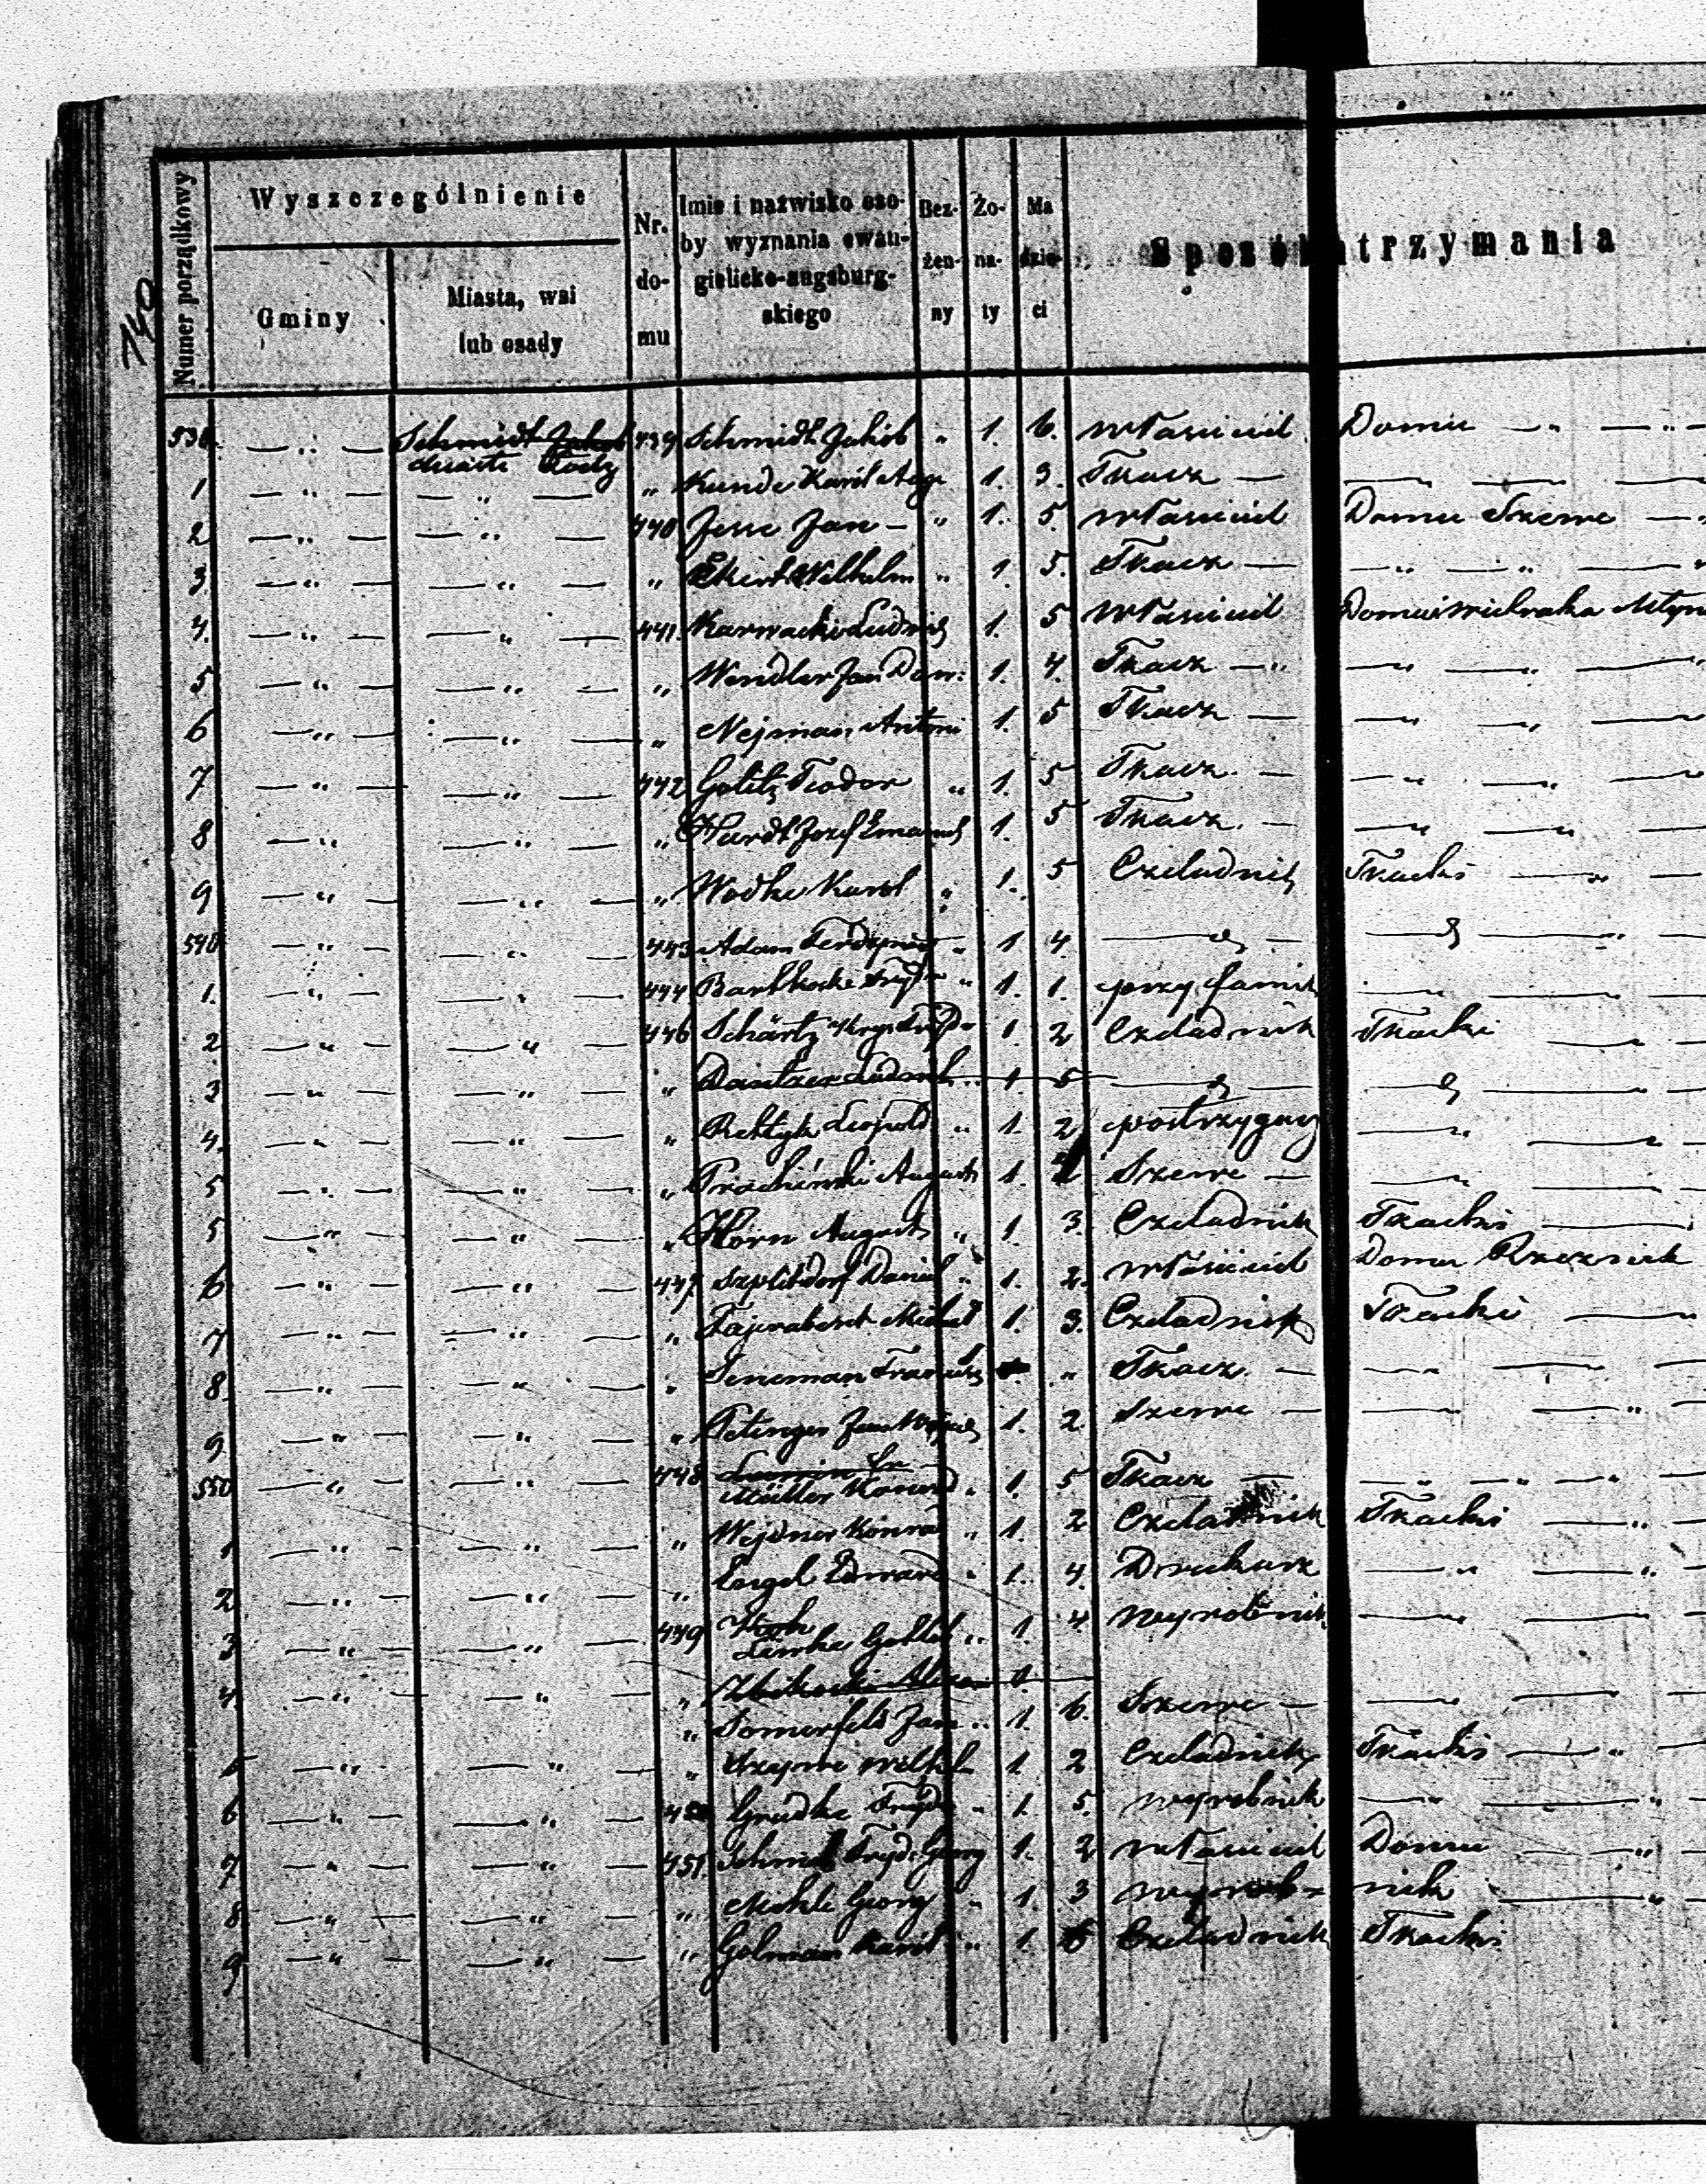 740
Numer porządkowy
Wyszczególnienie
Gminy
Miasta, wsi lub osady
Nr. domu
Imie i nazwisko osoby wyznania ewangielicko-augsburgskiego
Bezżenny
Żonaty
Ma dzieci
Sposób utrzymania
530 — „ — Schmidt Jakob miasto Łodz 439 Schmidt Jakób „ 1. 6. właściciel Domu — „ — „ —
1 — „ — — „ — „ Kunde Karól Aug 1. 3. Tkacz —
2 — „ — — „ — 440 Jesse Jan — „ 1. 5. właściciel Domu Szewc —
3 — „ — — „ — „ Ekert Wilhelm „ 1. 5. Tkacz —
4. — „ — — „ — 441. Karwacki Ludwig 1. 5 właściciel Domu i wiatraka Młyn
5 — „ — — „ — „ Wendler Jan Dan: 1. 4. Tkacz — „
6 — „ — — „ — „ Nejman Antoni 1. 5 Tkacz —
7 — „ — — „ — 442 Golitz Teodor „ 1. 5 Tkacz —
8 — „ — — „ — „ Hardt Jozef Emanuel 1. 5 Tkacz. —
9 — „ — — „ — „ Wodke Karol „ 1. 5 Czeladnik Tkacki — „ —
540 — „ — — „ — 443 Adam Ferdynand „ 1 4.
1. — „ — — „ — 444 „ 1. 1. przy familii
2 — „ — — „ — 446 Schärtz Fryd 1. 2 Czeladnik Tkacki
3 — „ — — „ — „ Dantzer Ludwik „ 1 5
4. — „ — — „ — „ Leopold „ 1. 2 postrzygacz
5 — „ — — „ — „ August 1. Szewc —
5 — „ — — „ — „ Horn August „ 1. 3. Czeladnik Tkacki —
6 — „ — — „ — 447. Szplitdorf Daniel „ 1. 2. właściciel Domu Rzeznik
7 — „ — — „ — „ Michał 1. 3. Czeladnik Tkacki —
8 — „ — — „ — „ „ Tkacz. —
9 — „ — — „ — „ Petinger Jan 1. 2 Szewc —
550 — „ — — „ — 448 Müller Konrad „ 1. 5 Tkacz —
1 — „ — — „ — „ Wejdner Konrad „ 1. 2 Czeladnik Tkacki — „ —
2 — „ — — „ — „ Engel Edward „ 1. 4. Drukarz
3 — „ — — „ — 449 Koch Lemke Gottlib „ 1. 4 wyrobnik
4 — „ — — „ —
„ Somerfeld Jan „ 1. 6. Szewc —
5 — „ — — „ — „ Wilhel 1. 2 Czeladnik Tkacki — „
6 — „ — — „ — 450 Grudke Fryd „ 1. 5. wyrobnik
7 — „ — — „ — 451. Schmidt Fryd. Georg 1. 2 właściciel Domu
8 — „ — — „ — „ Mohle Georg „ 1. 3 wyrob- nik
9 — „ — — „ — „ Golman Karól „ 1. 5 Czeladnik Tkacki